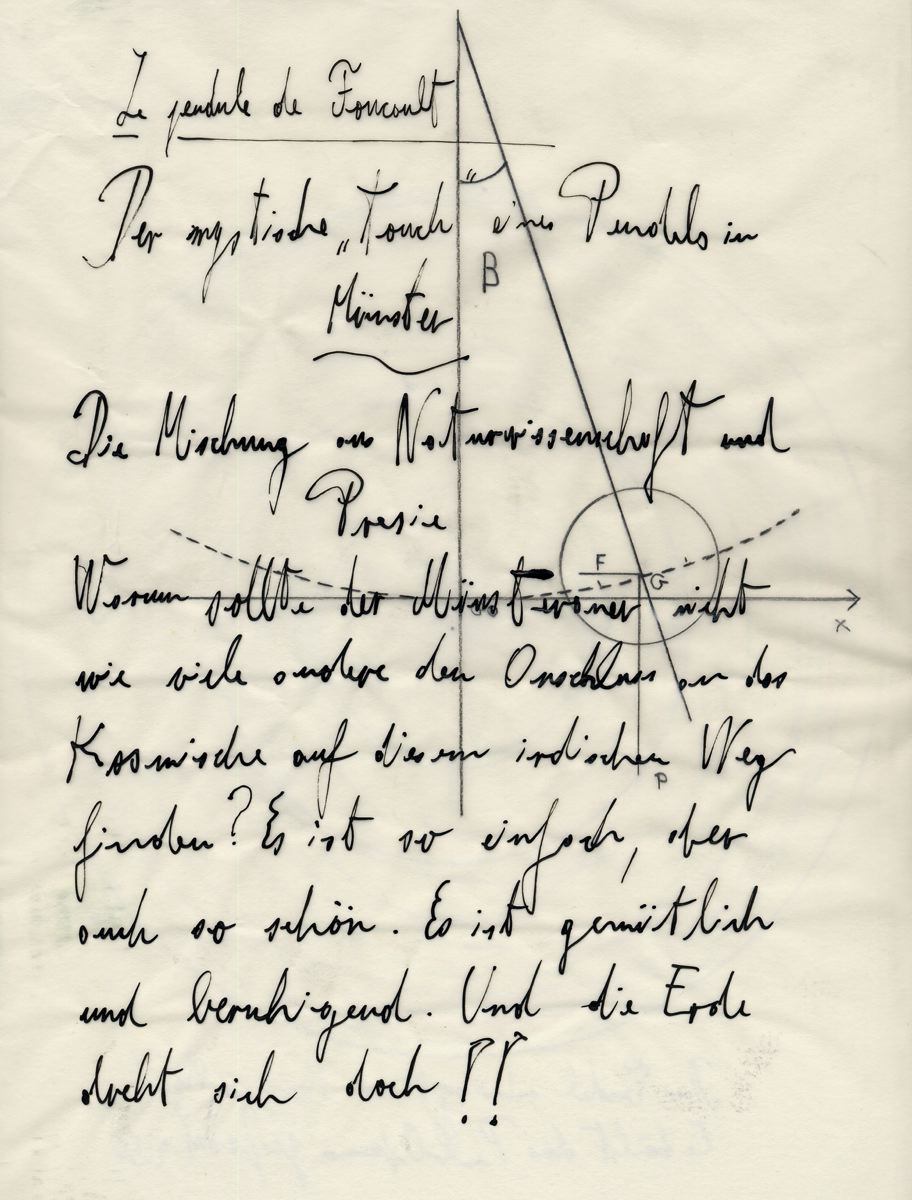 Le pendule de Foucault
Der mystische „Touch“ eines Pendels in
Münster
B
Die Mischung aus Naturwissenschaft und
Poesie
F
G
Warum sollte der Münsteraner nicht
x
wie viele andere den Anschluss an das
Kosmische auf diesem irdischen Weg
P
finden? Es ist so einfach, aber
auch so schön. Es ist gemütlich
und beruhigend. Und die Erde
dreht sich doch !!